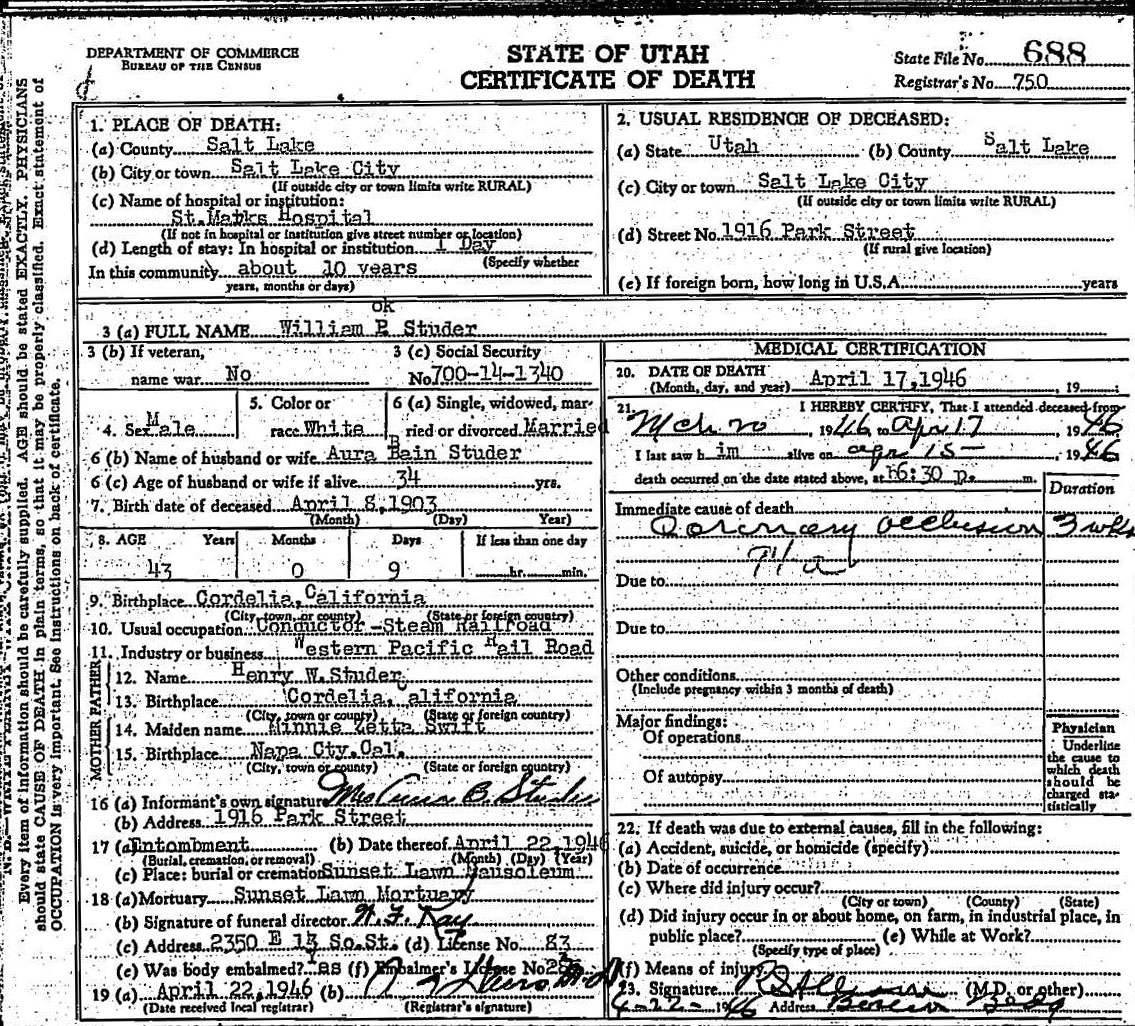 DEPARTMENT OF COMMERCE
BUREAU OF THE CENSUS
STATE OF UTAH
CERTIFICATE OF DEATH
State File No. 688
Registrar's No. 750
Every item of information should be carefully supplied. AGE should be stated EXACTLY. PHYSICIANS
should state CAUSE OF DEATH in plain terms, so that it may be properly classified. Exact statement of
OCCUPATION is very important. See instructions on back of certificate.
1. PLACE OF DEATH:
(a) County Salt Lake
(b) City or town Salt Lake City
(If outside city or town limits write RURAL)
(c) Name of hospital or institution:
St.Marks Hospital
(If not in hospital or institution give street number or location)
(d) Length of stay: In hospital or institution 1 Day
(Specify whether
In this community about 10 years
years, months or days)
2. USUAL RESIDENCE OF DECEASED:
(a) State Utah (b) County Salt Lake
(c) City or town Salt Lake City
(If outside city or town limits write RURAL)
(d) Street No. 1916 Park Street
(If rural give location)
(e) If foreign born, how long in U.S.A. years
ok
3 (a) FULL NAME William P. Studer
3 (b) If veteran,
name war No
3 (c) Social Security
No. 700-14-1340
4. Sex Male
5. Color or
race White
6 (a) Single, widowed, mar-
ried or divorced Married
6 (b) Name of husband or wife Aura Bain Studer
6 (c) Age of husband or wife if alive 34 yrs.
7. Birth date of deceased April 8, 1903
(Month) (Day) Year)
8. AGE Years Months Days If less than one day
43 0 9 hr. min.
9. Birthplace Cordelia, California
(City, town, or county) (State or foreign country)
10. Usual occupation Conductor -Steam Railroad
11. Industry or business Western Pacific Rail Road
FATHER
12. Name Henry W.Studer
13. Birthplace Cordelia, California
(City, town or county) (State or foreign country)
MOTHER
14. Maiden name Minnie Zetta Swift
15. Birthplace Napa Cty.Cal.
(City, town or county) (State or foreign country)
16 (a) Informant's own signature Mrs Aura B. Studer
(b) Address 1916 Park Street
17 (a) Entombment (b) Date thereof April 22, 1946
(Burial, cremation, or removal) (Month) (Day) (Year)
(c) Place: burial or cremation Sunset Lawn Mausoleum
18 (a) Mortuary Sunset Lawn Mortuary
(b) Signature of funeral director
(c) Address 2350 E 13 So.St. (d) License No. 83
(e) Was body embalmed? Yes (f) Embalmer's License No.
19 (a) April 22, 1946 (b)
(Date received local registrar) (Registrar's signature)
MEDICAL CERTIFICATION
20. DATE OF DEATH
(Month, day, and year) April 17, 1946, 19
21. I HEREBY CERTIFY, That I attended deceased from
Mch 20, 1946 to Apr 17 1946
I last saw h im alive on apr 15- 1946
death occurred on the date stated above, at 6:30 p. m.
Duration
Immediate cause of death
Coronary occlusion 3 wks
Due to
Due to
Other conditions
(Include pregnancy within 3 months of death)
Major findings:
Of operations
Of autopsy
Physician
Underline
the cause to
which death
should be
charged sta-
tistically
22. If death was due to external causes, fill in the following:
(a) Accident, suicide, or homicide (specify)
(b) Date of occurrence
(c) Where did injury occur?
(City or town) (County) (State)
(d) Did injury occur in or about home, on farm, in industrial place, in
public place? (e) While at Work?
(Specify type of place)
(f) Means of injury
23. Signature (M.D. or other)
4-22-1946 Address